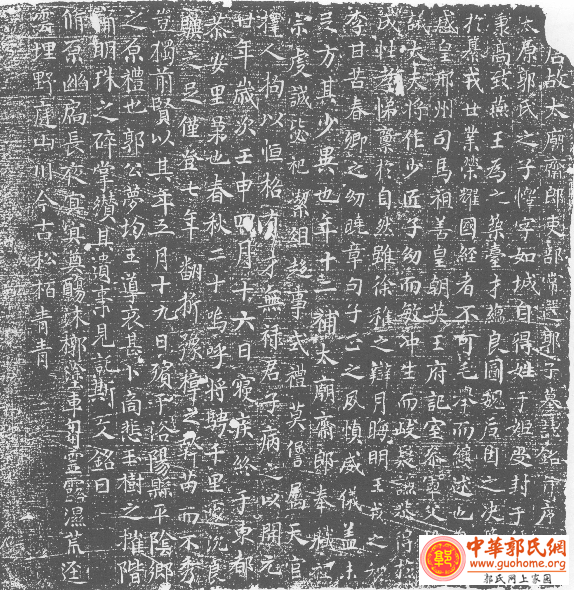 唐故太廟齋郎吏部常選郭子墓誌銘并序
太原郭氏之子惲字如城自得姓于姬受封于
秉高致燕王為之築臺才總良圖魏后因之決
於纂戎廿業榮耀國經者不可毛舉而縷述也
感皇邢州司馬祖善皇朝英王府記室參軍父
議大夫將作少匠子幼而敏沖生而岐嶷
氏性孝悌稟於自然雖徐稚之辯月晦明王戎之
李甘苦春卿之幼曉章句子之夙慎威儀蓋未
足方其少異也年十二補太廟齋郎奉職
宗虔誠毖祀潔俎趍事式禮莫僭屬天官
擇人拘以恒格有才無祿君子病之以開元
廿年歲次壬申四月十六日寢疾終于東都
恭安里第也春秋二十嗚呼將騁千里遽沉良
驥之足僅登七年翻折豫樟之幹苗而不秀
豈獨前賢以其年五月十九日殯于洛陽縣平陰鄉
之原禮也郭公夢均王導哀甚卜商悲玉樹之摧階
痛明珠之碎掌纘其遺事見託斯文銘曰
脩原幽扃長夜寘寘奠觴沐槨陰車晨靈露濕荒逕
雲埋野庭山川今古松柏青青
中華郭氏網
www.guohome.org
郭氏網上家園